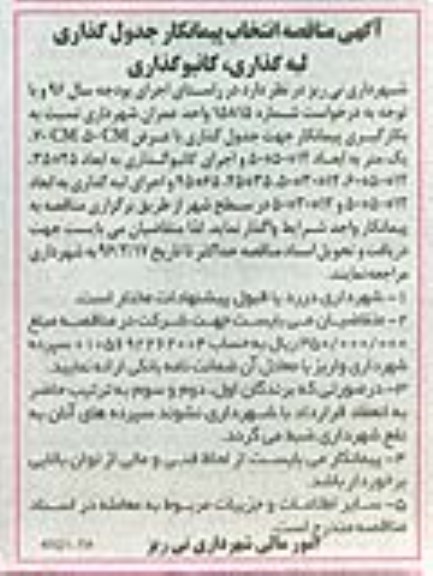 آگهی مناقصه انتخاب پیمانکار جدول گذاری
لبه گذاری، کانیو گذاری
شهرداری نی ریز در نظر دارد در راستای اجرای بودجه سال ۹۶ و با
توجه به درخواست شماره ۱۵۸۱۵ واحد عمران شهرداری نسبت به
بکارگیری پیمانکار جهت جدول گذاری با عرض ۵۰CM، ۶۰CM
یک متر به ابعاد و اجرای کانیوگذاری به ابعاد
و اجرای لبه گذاری به ابعاد
در سطح شهر از طریق برگزاری مناقصه به
پیمانکار واجد شرایط واگذار نماید. لذا متقاضیان می بایست جهت
دریافت و تحویل اسناد مناقصه حداکثر تا تاریخ ۹۶/۲/۱۷ به شهرداری
مراجعه نمایند.
۱- شهرداری در رد یا قبول پیشنهادات مختار است.
۲- متقاضیان می بایست جهت شرکت در مناقصه مبلغ
ریال به حساب سپرده
شهرداری واریز یا معادل آن ضمانت نامه بانکی ارائه نمایید.
۳- در صورتی که برندگان اول، دوم و سوم به ترتیب حاضر
به انعقاد قرارداد با شهرداری نشوند سپرده های آنان به
نفع شهرداری ضبط می گردد.
۴- پیمانکار می بایست از لحاظ فنی و مالی از توان بالایی
برخوردار باشد.
۵- سایر اطلاعات و جزییات مربوط به معامله در اسناد
مناقصه مندرج است.
امور مالی شهرداری نی ریز